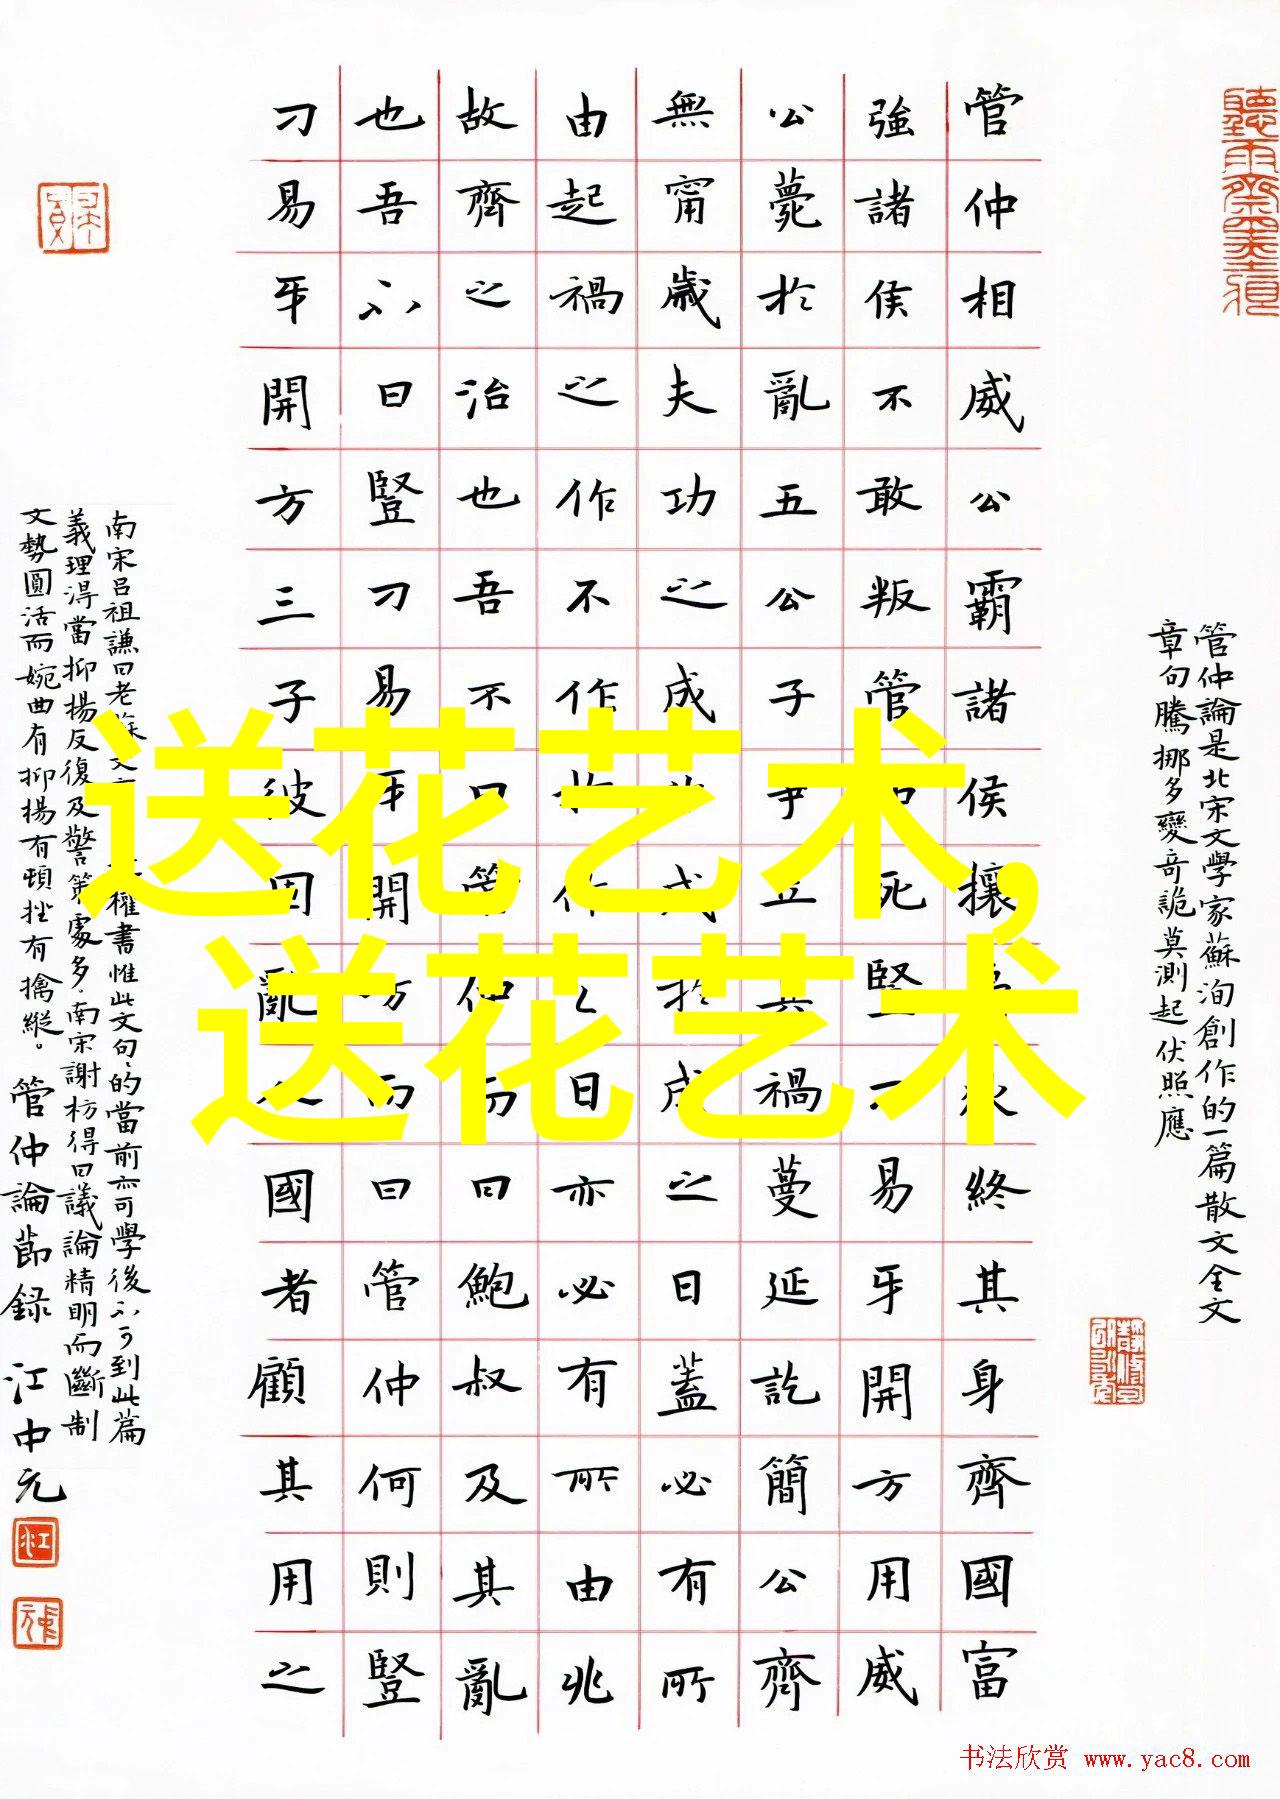 管仲論是北宋文學家蘇洵創作的一篇散文全文
章句騰挪多變奇詭莫測起伏照應
管仲相威公霸諸侯攘夷狄終其身齊國富
強諸侯不敢叛管仲死豎刁易牙開方用威
公薨於亂五公子爭立其禍蔓延訖簡公齊
無甯歲夫功之成非成於成之日蓋必有所
由起禍之作不作於作之日亦必有所由兆
故齊之治也吾不曰管仲而曰鮑叔及其亂
也吾不曰豎刁易牙開方而曰管仲何則豎
刁易牙開方三子彼固亂人國者顧其用之
南宋呂祖謙曰老蘇文權書惟此文句句的當前亦可學後不可到此篇
義理淂當抑揚反復及警策處多南宋謝枋得曰議論精明而斷制
文勢圓活而婉曲有抑揚有頓挫有擒縱。管仲論節録 江中元
送花艺术,
送花艺术
书法欣赏 www.yac8.com